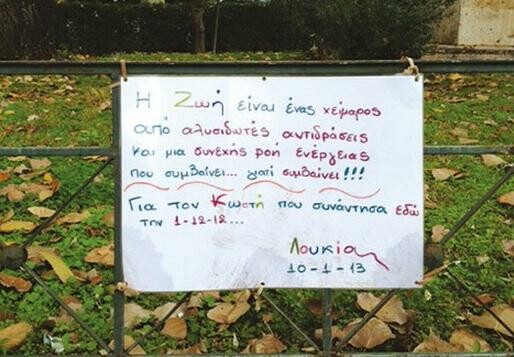 Η Ζωή είναι ένας χείμαρος
από αλυσιδωτές αντιδράσεις
και μια συνεχής ροή ενέργειας
που συμβαίνει... γιατί συμβαίνει!!!
Για τον Κωστή που συνάντησα εδώ
την 1-12-12...
Λουκία
10-1-13